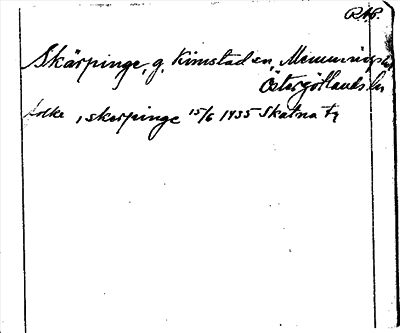 RAP.
Skärpinge, g. Kimstad sn, Memmings hd,
Östergötlands ln
folke, i skerpinge 15/6 1435 Skatna fg